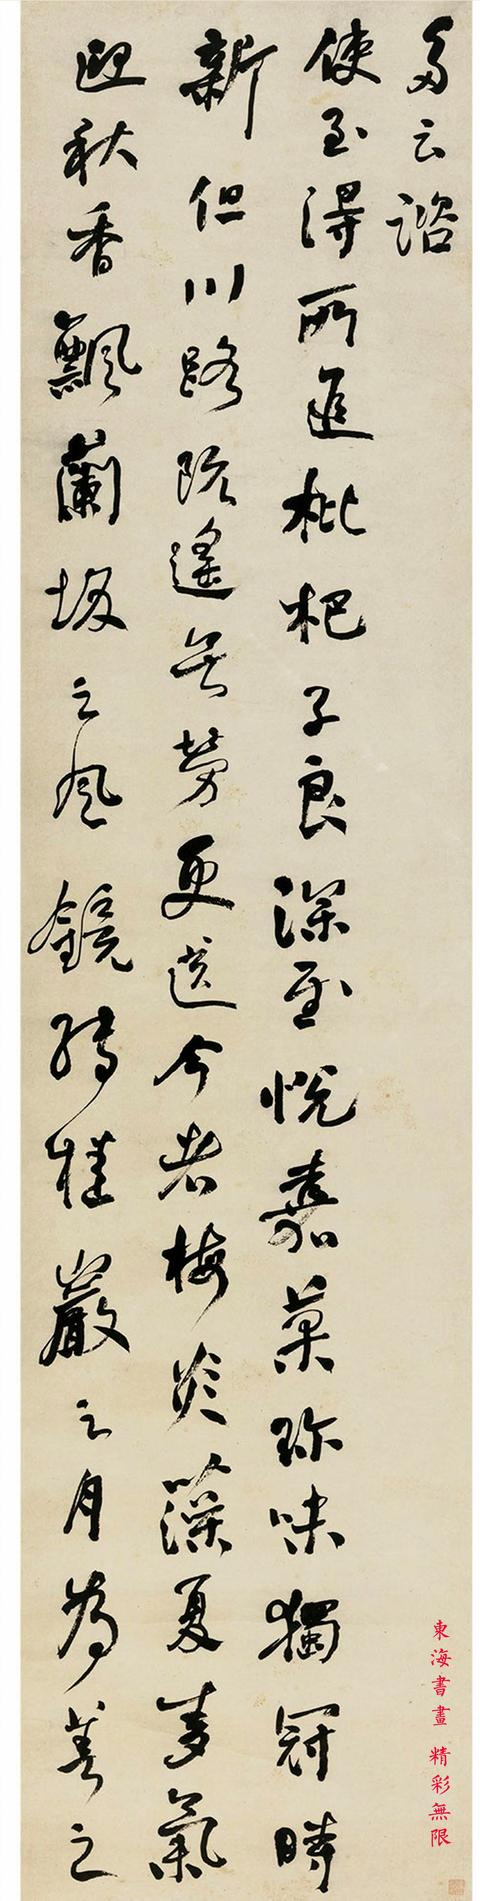 多云諮
使至得所進枇杷子良深至悅嘉菓珍味獨冠時
新但川路既遙無勞更送今者梅炎藻夏麥氣
迎秋香飄蘭坂之風鏡轉桂巖之月為善之
東海書畫 精彩無限